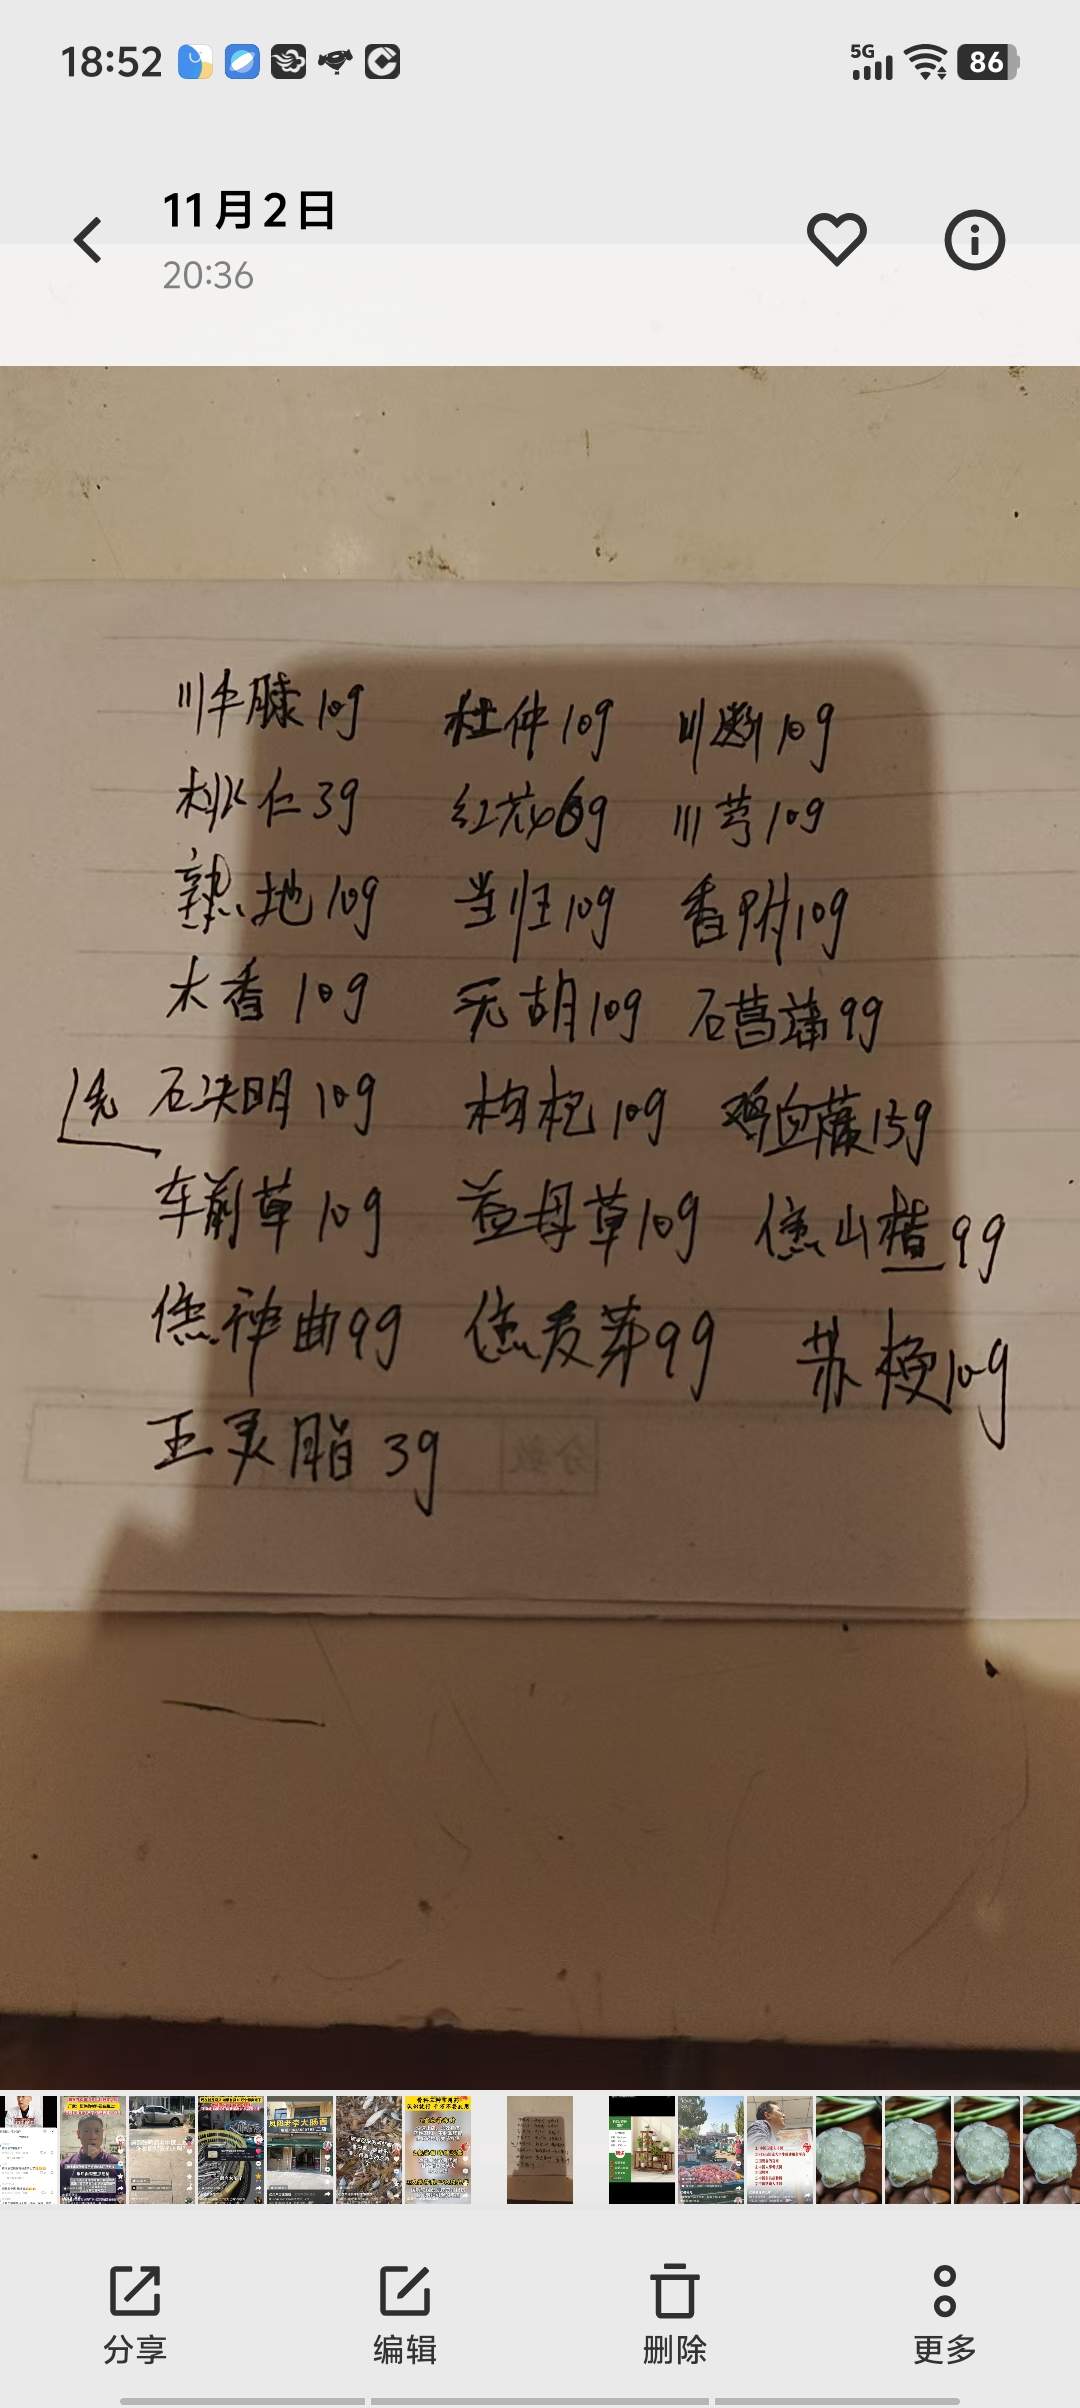 18:52
5G
86
11月2日
20:36
川牛膝10g 杜仲10g 川断10g
桃仁3g 红花6g 川芎10g
熟地10g 当归10g 香附10g
木香10g 元胡10g 石菖蒲9g
先 石决明10g 枸杞10g 鸡血藤15g
车前草10g 益母草10g 焦山楂9g
焦神曲9g 焦麦芽9g 苏梗10g
五灵脂3g
分享 编辑 删除 更多